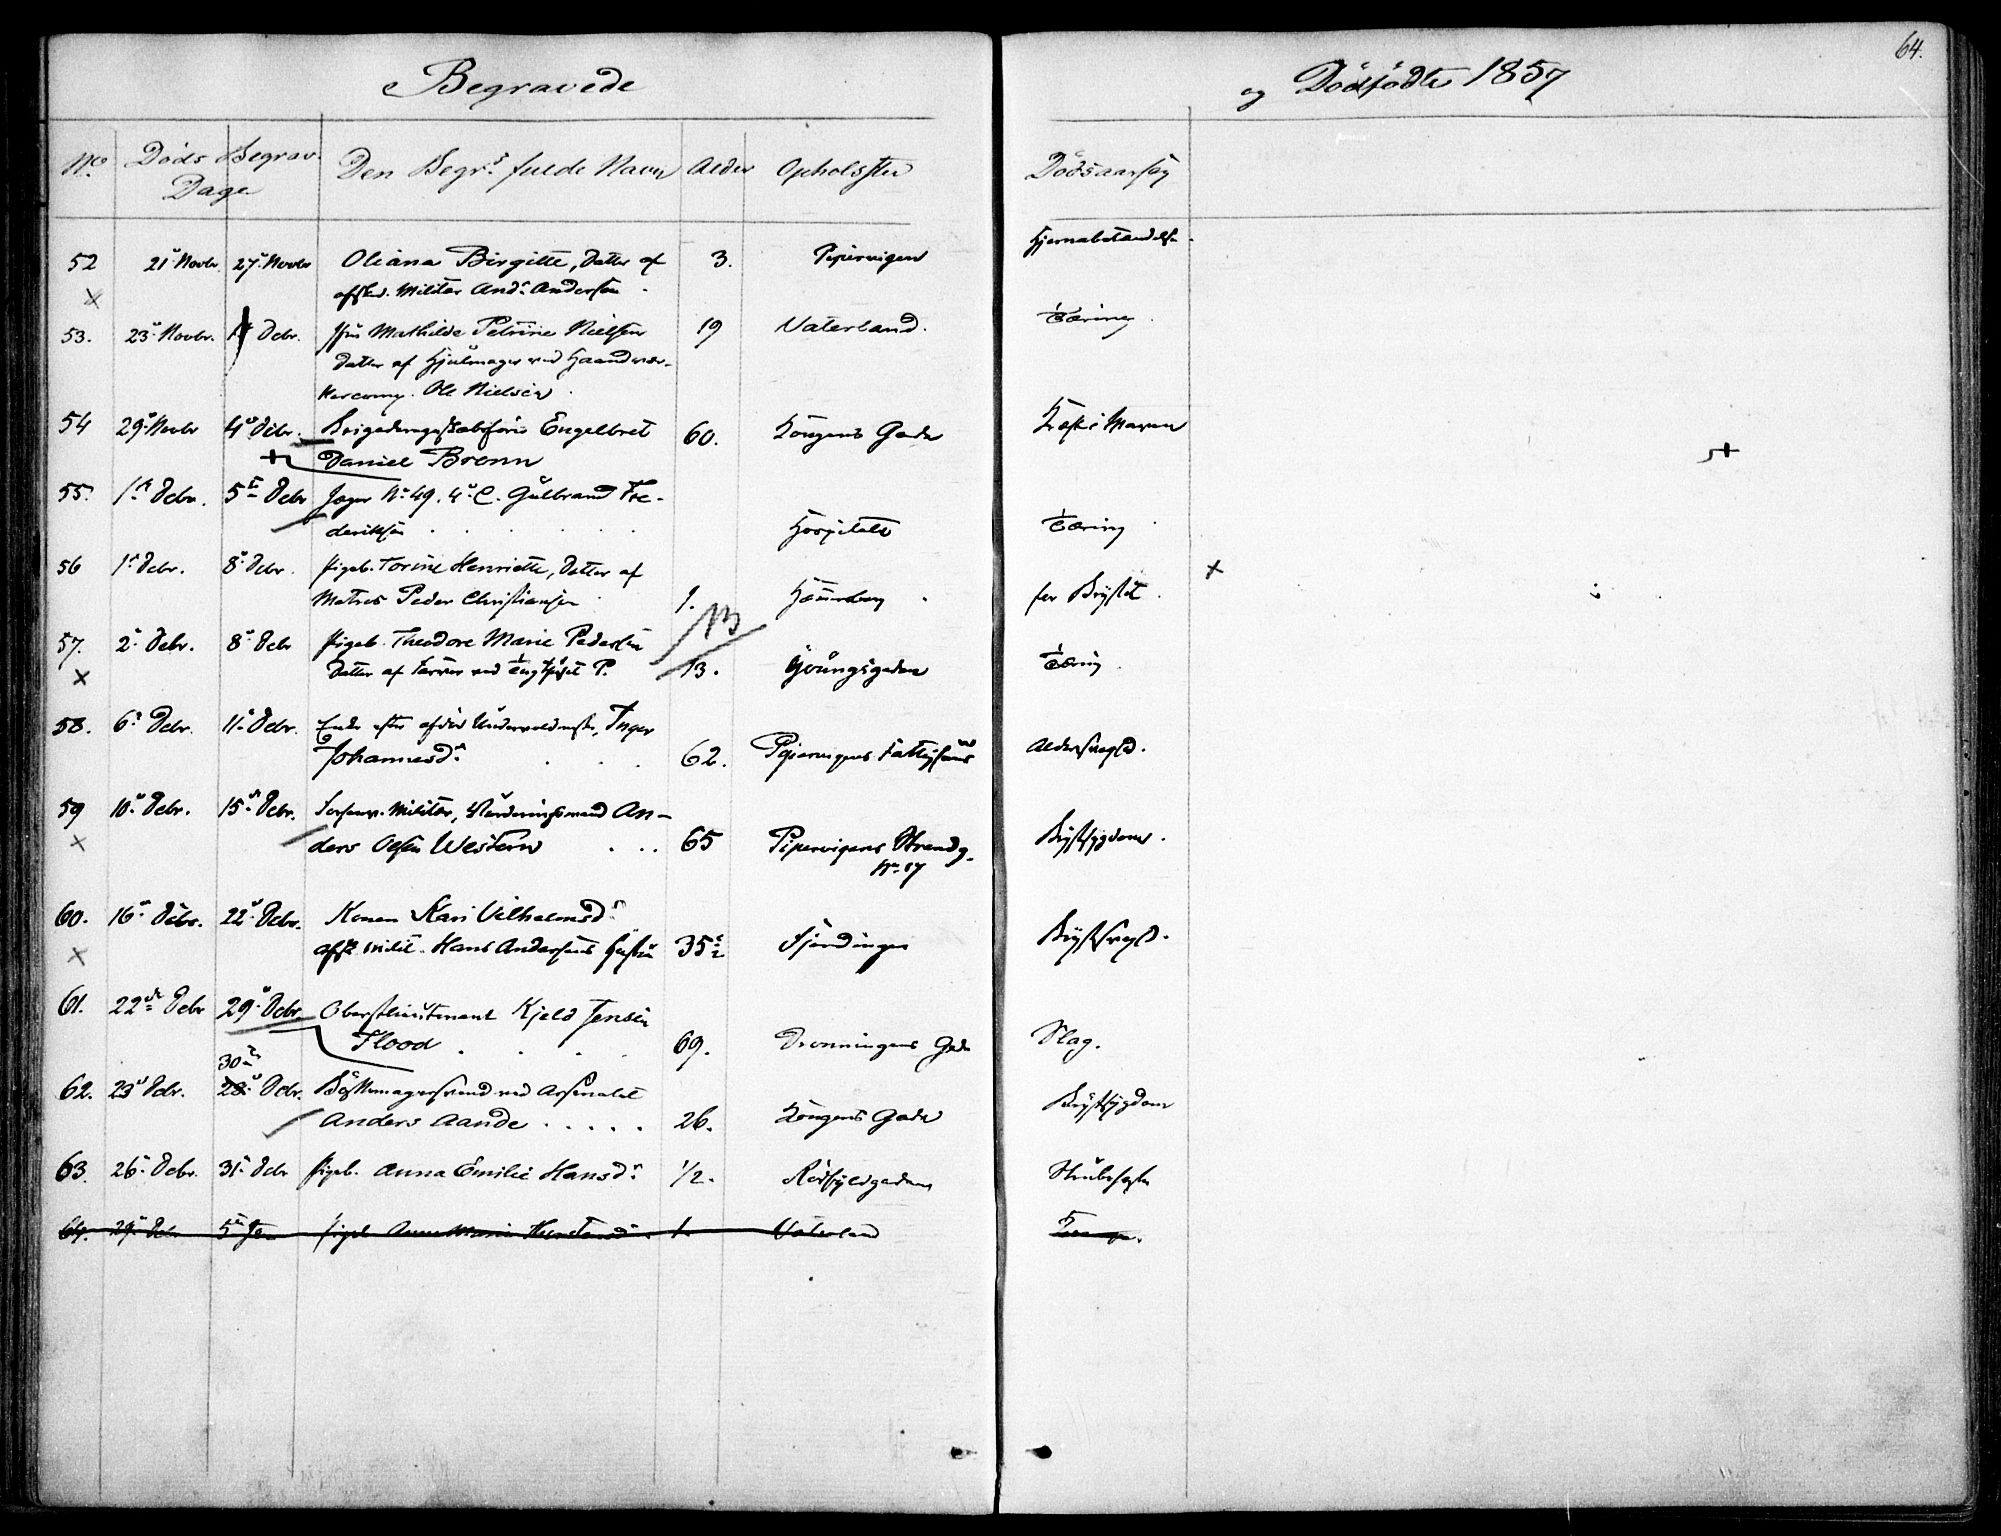 Begravede
og Dødfødte 1857
64.
No. Døds Begrav. Den Begr.s fulde Navn Alder Opholsste Dødsaarsag
Dage
52 21. Novbr. 27. Novbr Oliana Birgitte, Datter af 3. Pipervigen
afsked. Militær And. Andersen
53. 23. Novbr. Debr. Mathilde Petrine Nielsen 19 Vaterland. Tæring
Datter af Hjulmager ved Haandvær-
kercomp. Ole Nielsen
54 29. Novbr 4. Debr. Engelbret 60. Kongens Gade Kræft i Maven
Daniel Brenn
55. 1. Debr. 5. Debr Jæger No. 49. 4. C. Gulbrand Fre-
deriksen Hospitalet Tæring
56 1. Debr. 8. Debr. Pigeb. Torine Henriette, Datter af
Matros Peder Christiansen 1. for Brystet
57. 2. Debr. 8. Debr Pigeb. Theodore Marie Pedersen 13
Datter af ved Tøyhuset P. 13. Tæring
58. 6. Debr. 11. Debr. Enke efter afdød Inger
Johannesd. 62. Pipervigens Fattighuus Alderssvagd.
59 10. Debr. 15. Debr. Militær, An-
ders Olsen Western 65 Pipervigens Strandg. Brystsygdom.
No. 17
60. 16. Debr. 22. Debr. Konen Kari Vilhelmsd.
afsk. milit. Hans Andersens Hustru 35 Fjerdingen Brystsvagd.
61. 22de Debr 29. Debr. Oberstlieutenant Kjeld Jensen
Flood 69. Dronningens Gade Slag.
30
62. 23 Debr. 28. Debr. Bøssemagersvend ved Arsenalet
Anders Aande 26. Kongens Gade Brystsygdom
63. 26. Debr. 31. Debr Pigeb. Anna Emilie Hansd. 1/2. Rødfyldgaden Strubehoste
64. 29. Debr 5. Ja Pigeb Anne Marie 1. Vaterland